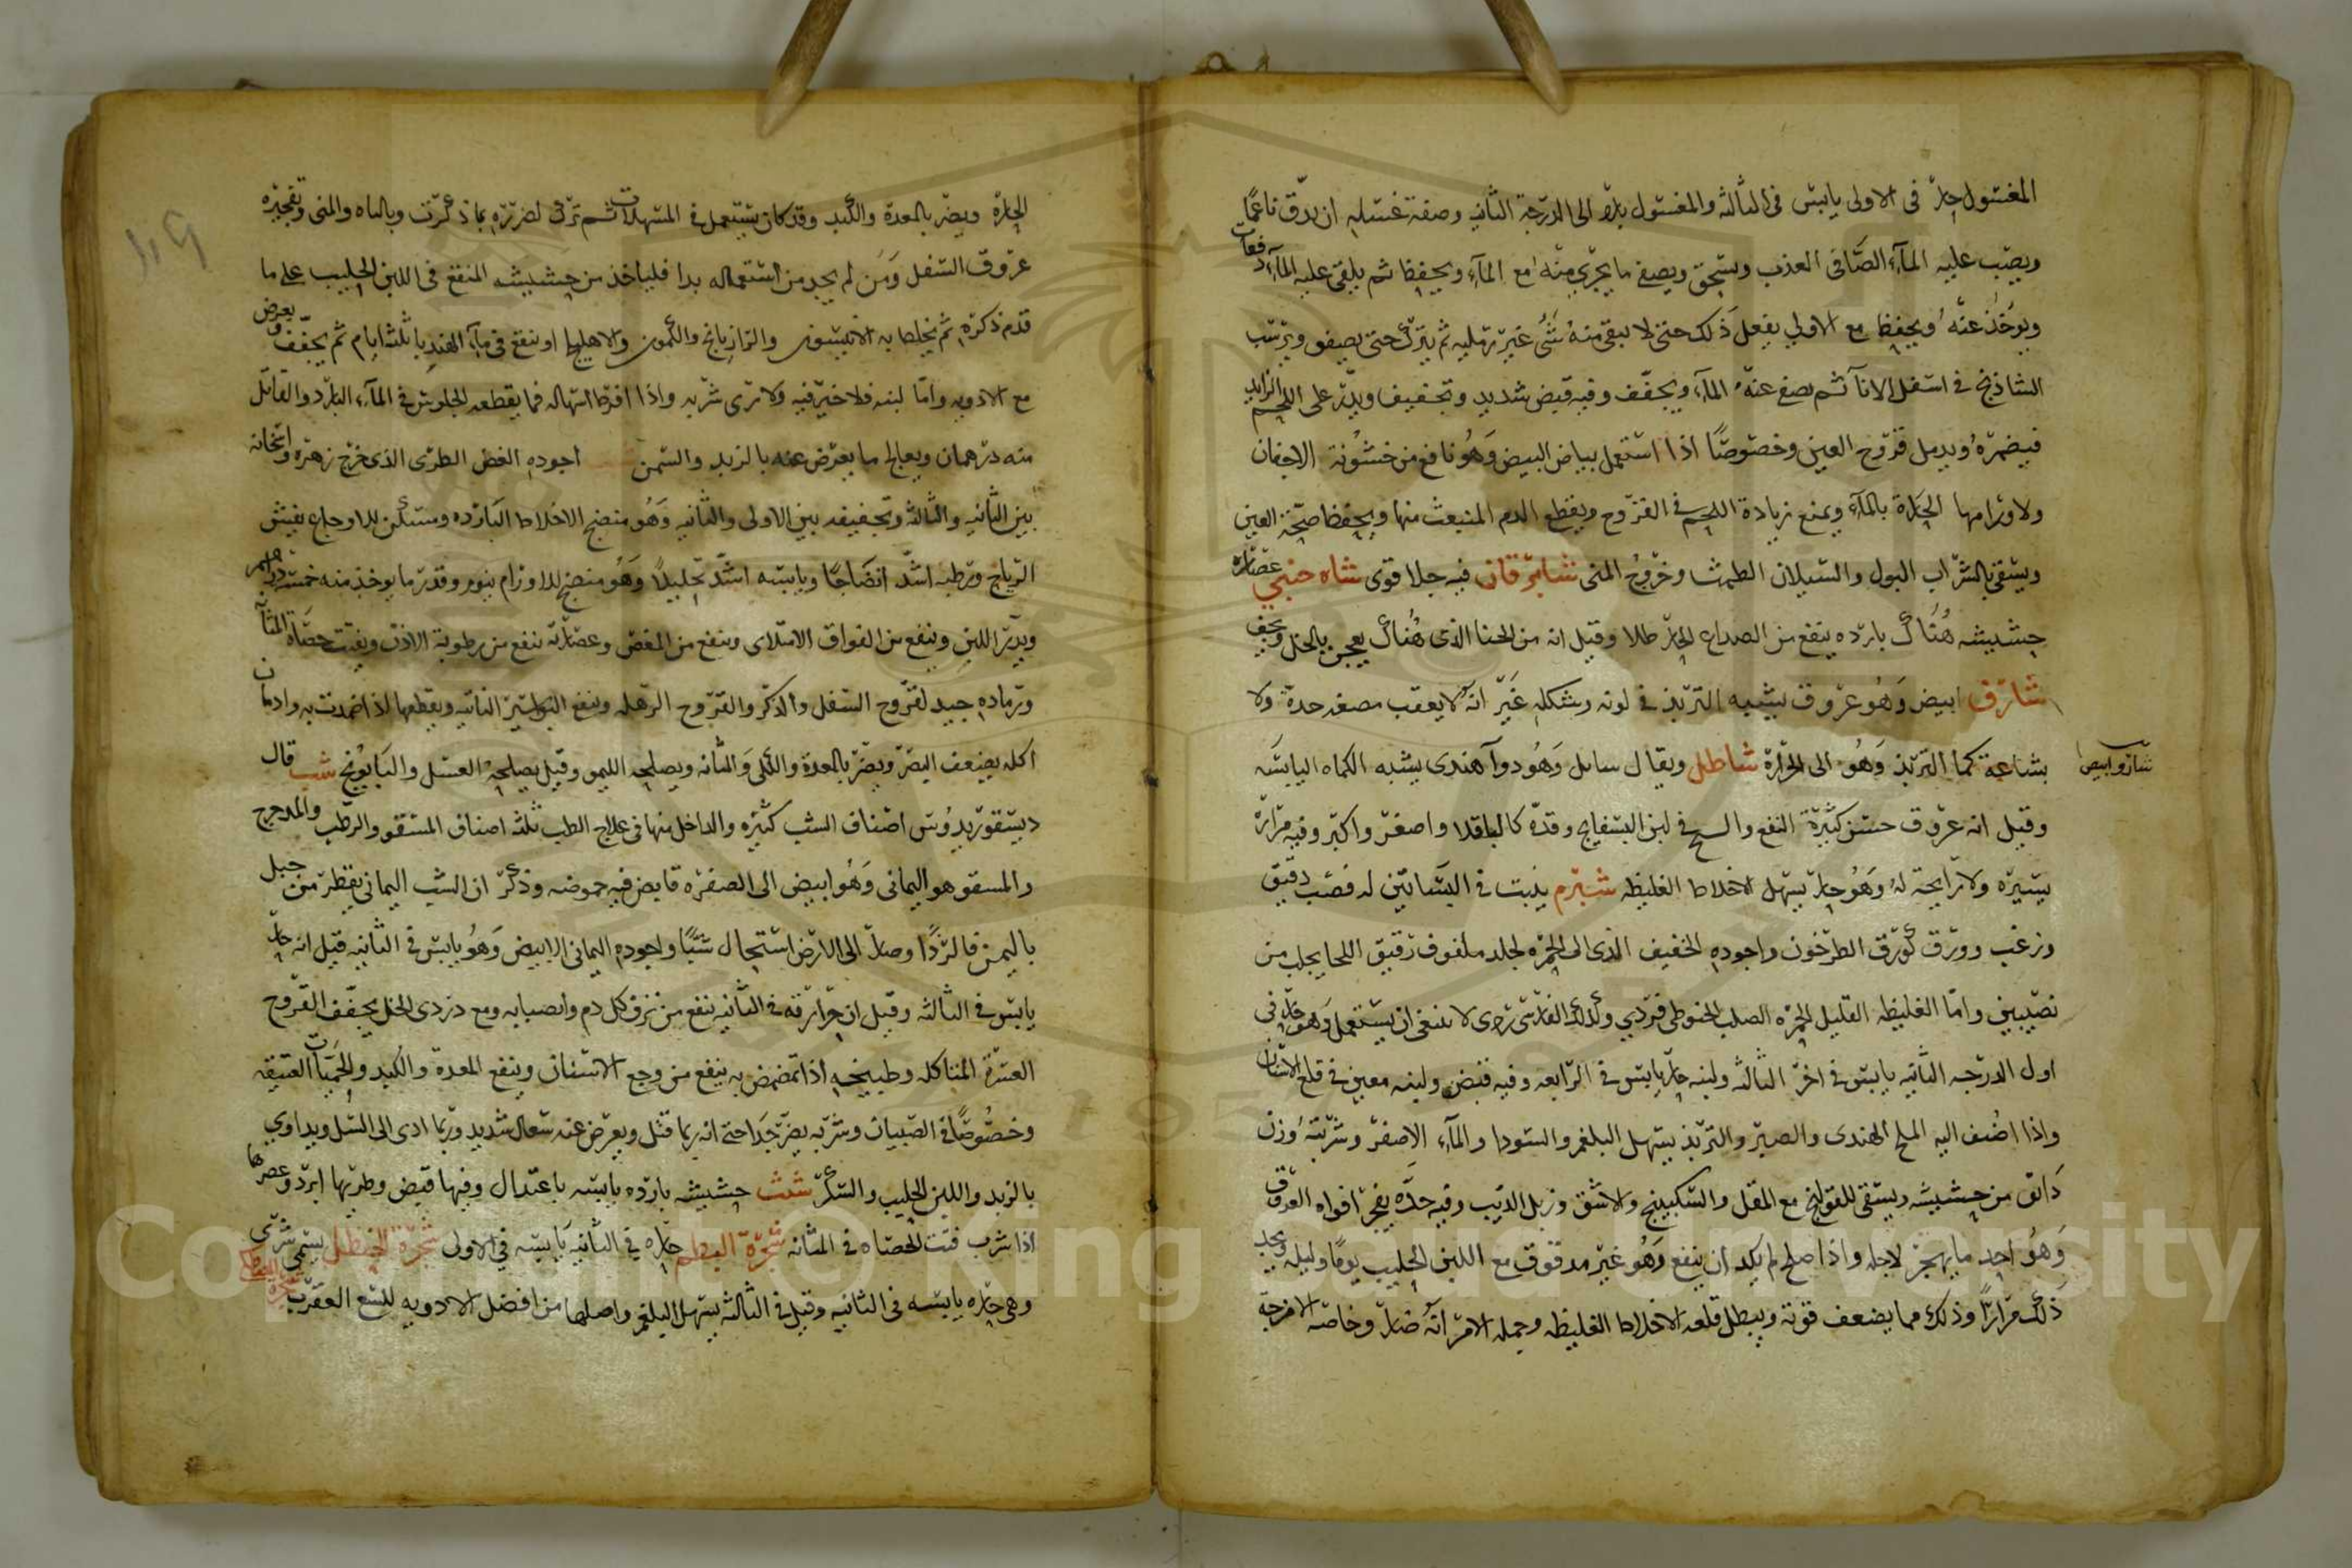 المغسول حار في الاولى يابس في الثالثه والمغسول بارد الى الدرجة الثانيه وصفة غسله ان يدق ناعمًا
ويصب عليه المآء الصافى العذب ويسحق ويصفى ما يجرى منه مع المآء ويحفظ ثم يلقى عليه المآء دفعات
ويوخذ عنه ويحفظ مع الاولى يفعل ذلك حتى لا يبقى منه شئ غير رمليه ثم يترك حتى يصفو ويرسب
الشاذنج في اسفل الانآ ثم يصفى عنه المآء ويجفف وفيه قبض شديد وتجفيف ويذر على اللحم الزايد
فيضمره ويدمل قروح العين وخصوصًا اذا استعمل ببياض البيض وهو نافع من خشونة الاجفان
ولاورامها الحارة بالمآء ويمنع زيادة اللحم في القروح ويقطع الدم المنبعث منها ويحفظ صحة العين
ويسقى بالشراب البول والسيلان الطمث وخروج المنى شابرقان فيه جلا قوى شاه حبني عصاره
حشيشه هناك بارده ينفع من الصداع الحار طلا وقيل انه من الحنا الذى هناك يعجن بالخل ويجفف
شارف ابيض وهو عروق يشبه التربذ في لونه وشكله غير انه لا يعقب مصغه حدة ولا
بشاعة كما التربذ وهو الى الحرارة شاطل ويقال ساىل وهو دوآ هندى يشبه الكماه اليابسه
وقيل انه عروق حسن كثيرة النفع والسحج في لين البسفايج وقده كالباقلا واصغر واكبر وفيه مرارة
يسيره ولا رايحة له وهو حار يسهل الاخلاط الغليظه شبرم ينبت في البساتين له قصب دقيق
وزغب وورق كورق الطرخون واجوده الخفيف الذى الى الحمره لجلد ملفوف رقيق اللحا يجلب من
نصيبين واما الغليظه القليل الحمره الصلب الخيوطى فردي وكذلك الفارسى ردى لا ينبغى ان يستعمل وهو حار في
اول الدرجه الثانيه يابس في اخر الثالثه ولبنه حار يابس في الرابعه وفيه قبض ولبنه معين في قلع الاسنان
واذا اضيف اليه الملح الهندى والصبر والتربذ يسهل البلغم والسودا والمآء الاصفر وشربته وزن
دانق من حشيشه ويسقى للقولنج مع المقل والسكبينج والاشق وزبل الذيب وفيه حده يفجر افواه العروق
وهو احد ما يهجر لاجله واذا صلح لم يكد ان ينفع وهو غير مدقوق مع اللبن الحليب يومًا وليله ويجدد
ذلك مرارًا وذلك مما يضعف قوته ويبطل قلعه الاخلاط الغليظه وجمله الامر انه ضار وخاصه الامزجة
شارف ابيض
الحارة ويضر بالمعدة والكبد وقد كان يستعمل في المسهلات ثم ترك لضرره بما ذكرت وبالباه والمنى وتفجيره
عروق السفل ومن لم يجد من استعماله بدا فلياخذ من حشيشه المنقع في اللبن الحليب على ما
قدم ذكره ثم يخلط به الانيسون والرازيانج والكمون والاهليلج او ينقع في مآء الهندبا ثلثه ايام ثم يجفف ويعرض
مع الادويه واما لبنه فلا خير فيه ولا ترى شربه واذا افرط اسهاله فما يقطعه الجلوس في المآء البارد والقاتل
منه درهمان ويعالج ما يعرض عنه بالزبد والسمن اجوده الغض الطرى الذى خرج زهره واسخانه
بين الثانيه والثالثه وتجفيفه بين الاولى والثانيه وهو منضج الاخلاط البارده ومسكن للاوجاع يفيش
الرياح ورطبه اشد انضاجًا ويابسه اشد تحليلًا وهو منضج للاورام ينوم وقدر ما يوخذ منه خمسة دراهم
ويدر اللبن وينفع من الفواق الامتلاى وينفع من المغص وعصارته تنفع من رطوبة الاذن ويفتت حصاة المثانه
ورماده جيد لقروح السفل والذكر والقروح الرهله وينفع البواسير الناتيه ويقطعها اذا ضمدت به وادمان
اكله يضعف البصر ويضر بالمعدة والكلى والمثانه ويصلحه الليمو وقيل يصلحه العسل والبابونج شب قال
ديسقوريدوس اصناف الشب كثيره والداخل منها في علاج الطب ثلثه اصناف المشقق والرطب والمدحرج
والمسقو هو اليمانى وهو ابيض الى الصفره قابض فيه حموضه وذكر ان الشب اليمانى يقطر من جبل
باليمن فالزدا وصار الى الارض استحال شبًا واجوده اليمانى الابيض وهو يابس في الثانيه قيل انه حار
يابس في الثالثه وقيل ان حرارته في الثانيه ينفع من نزف كل دم وانصبابه ومع دردى الخل يجفف القروح
العسرة المتاكله وطبيخه اذا تمضمض به ينفع من وجع الاسنان وينفع المعدة والكبد والحميات العتيقه
وخصوصًا في الصبيان وشربه يضر جدا حتى انه ربما قتل ويعرض عنه سعال شديد وربما ادى الى السل ويداوي
بالزبد واللبن الحليب والسكر شث حشيشه بارده يابسه باعتدال وفيها قبض وطريها ابرد وعصرها
اذا شرب فتت الحصاه في المثانه شجرة حاره في الثانيه يابسه في الاولى شجرة الحنظل يسمى شرى
وهى حاره يابسه في الثانيه وقيل في الثالثه يسهل البلغم واصلها من افضل الادويه للسع العقرب
Copyright © King Saud University
1957